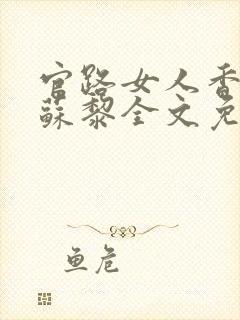 官路女人香
蘇黎全文免
鱼危